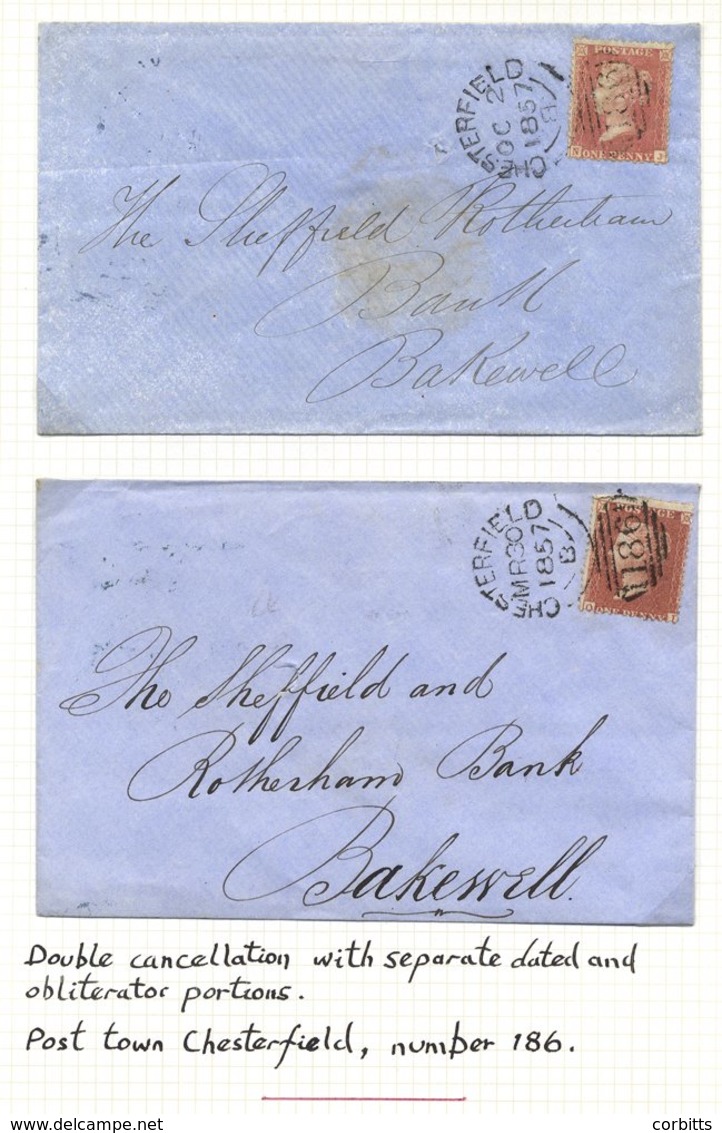 CHESTERFIELD
OC 2
1857
B
POSTAGE
186
N J
ONE PENNY
The Sheffield Rotherham
Bank
Bakewell
CHESTERFIELD
MR 30
1857
B
POSTAGE
186
ONE PENNY
The Sheffield and
Rotherham Bank
Bakewell.
Double cancellation with separate dated and
obliterator portions.
Post town Chesterfield, number 186.
www.delcampe.net
corbitts